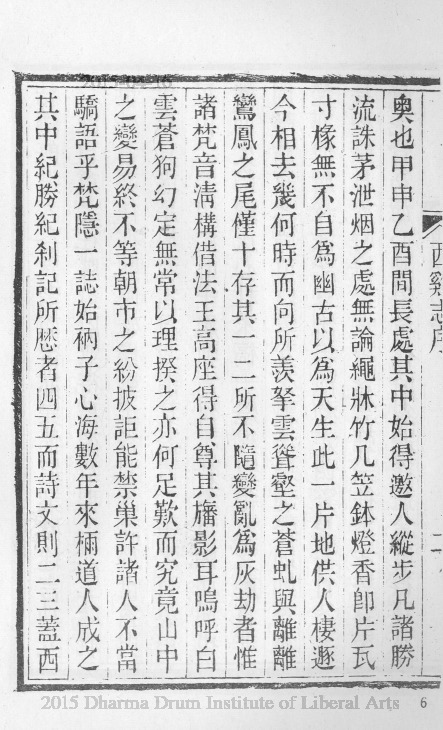 奧也甲申乙酉間長處其中始得邀人縱步凡諸勝
流誅茅泄烟之處無論繩牀竹几笠鉢燈香卽片瓦
寸椽無不自為幽古以為天生此一片地供人棲遯
今相去幾何時而向所羨拏雲聳壑之蒼虬與離離
鸞鳳之尾僅十存其一二所不隨變亂為灰劫者惟
諸梵音淸構借法王高座得自尊其旛影耳嗚呼白
雲蒼狗幻定無常以理揆之亦何足歎而究竟山中
之變易終不等朝市之紛披詎能禁巢許諸人不當
驕語乎梵隱一誌始衲子心海數年來栯道人成之
其中紀勝紀剎記所歷者四五而詩文則二三蓋西
西谿志序
二
2015 Dharma Drum Institute of Liberal Arts
6